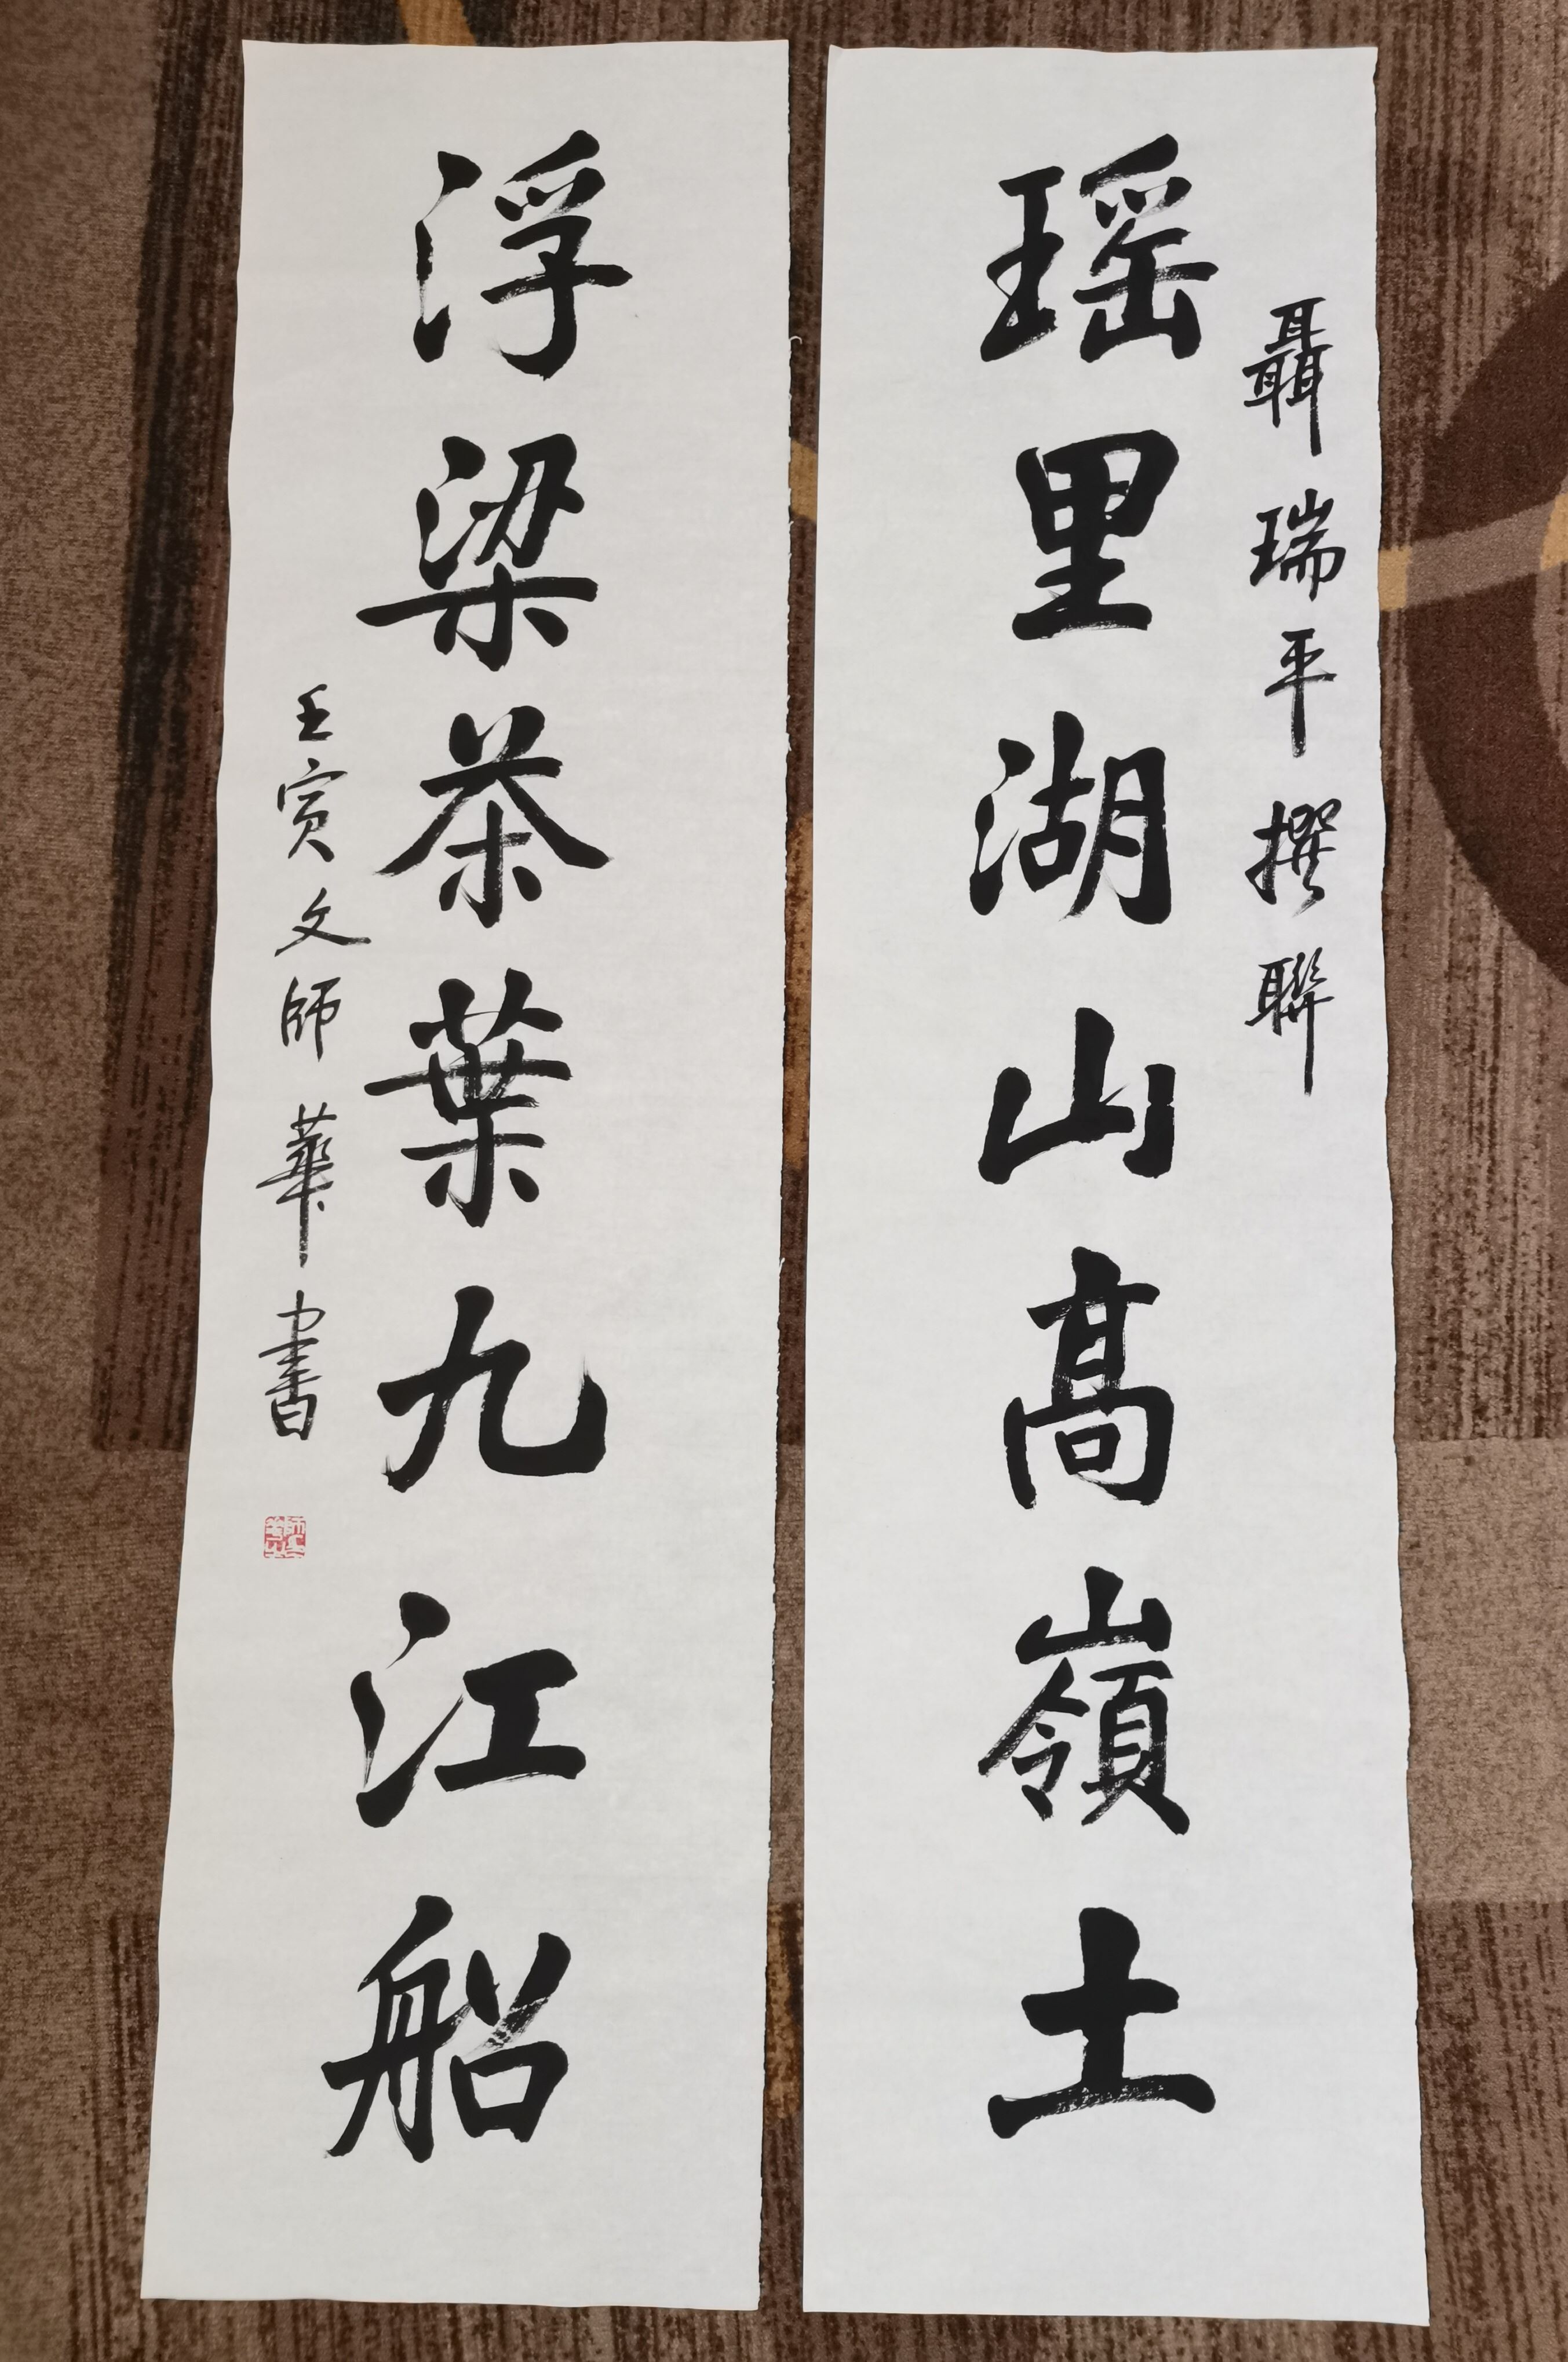 聶瑞平撰聯
瑶里湖山高嶺土
浮梁茶葉九江船
壬寅文師華書